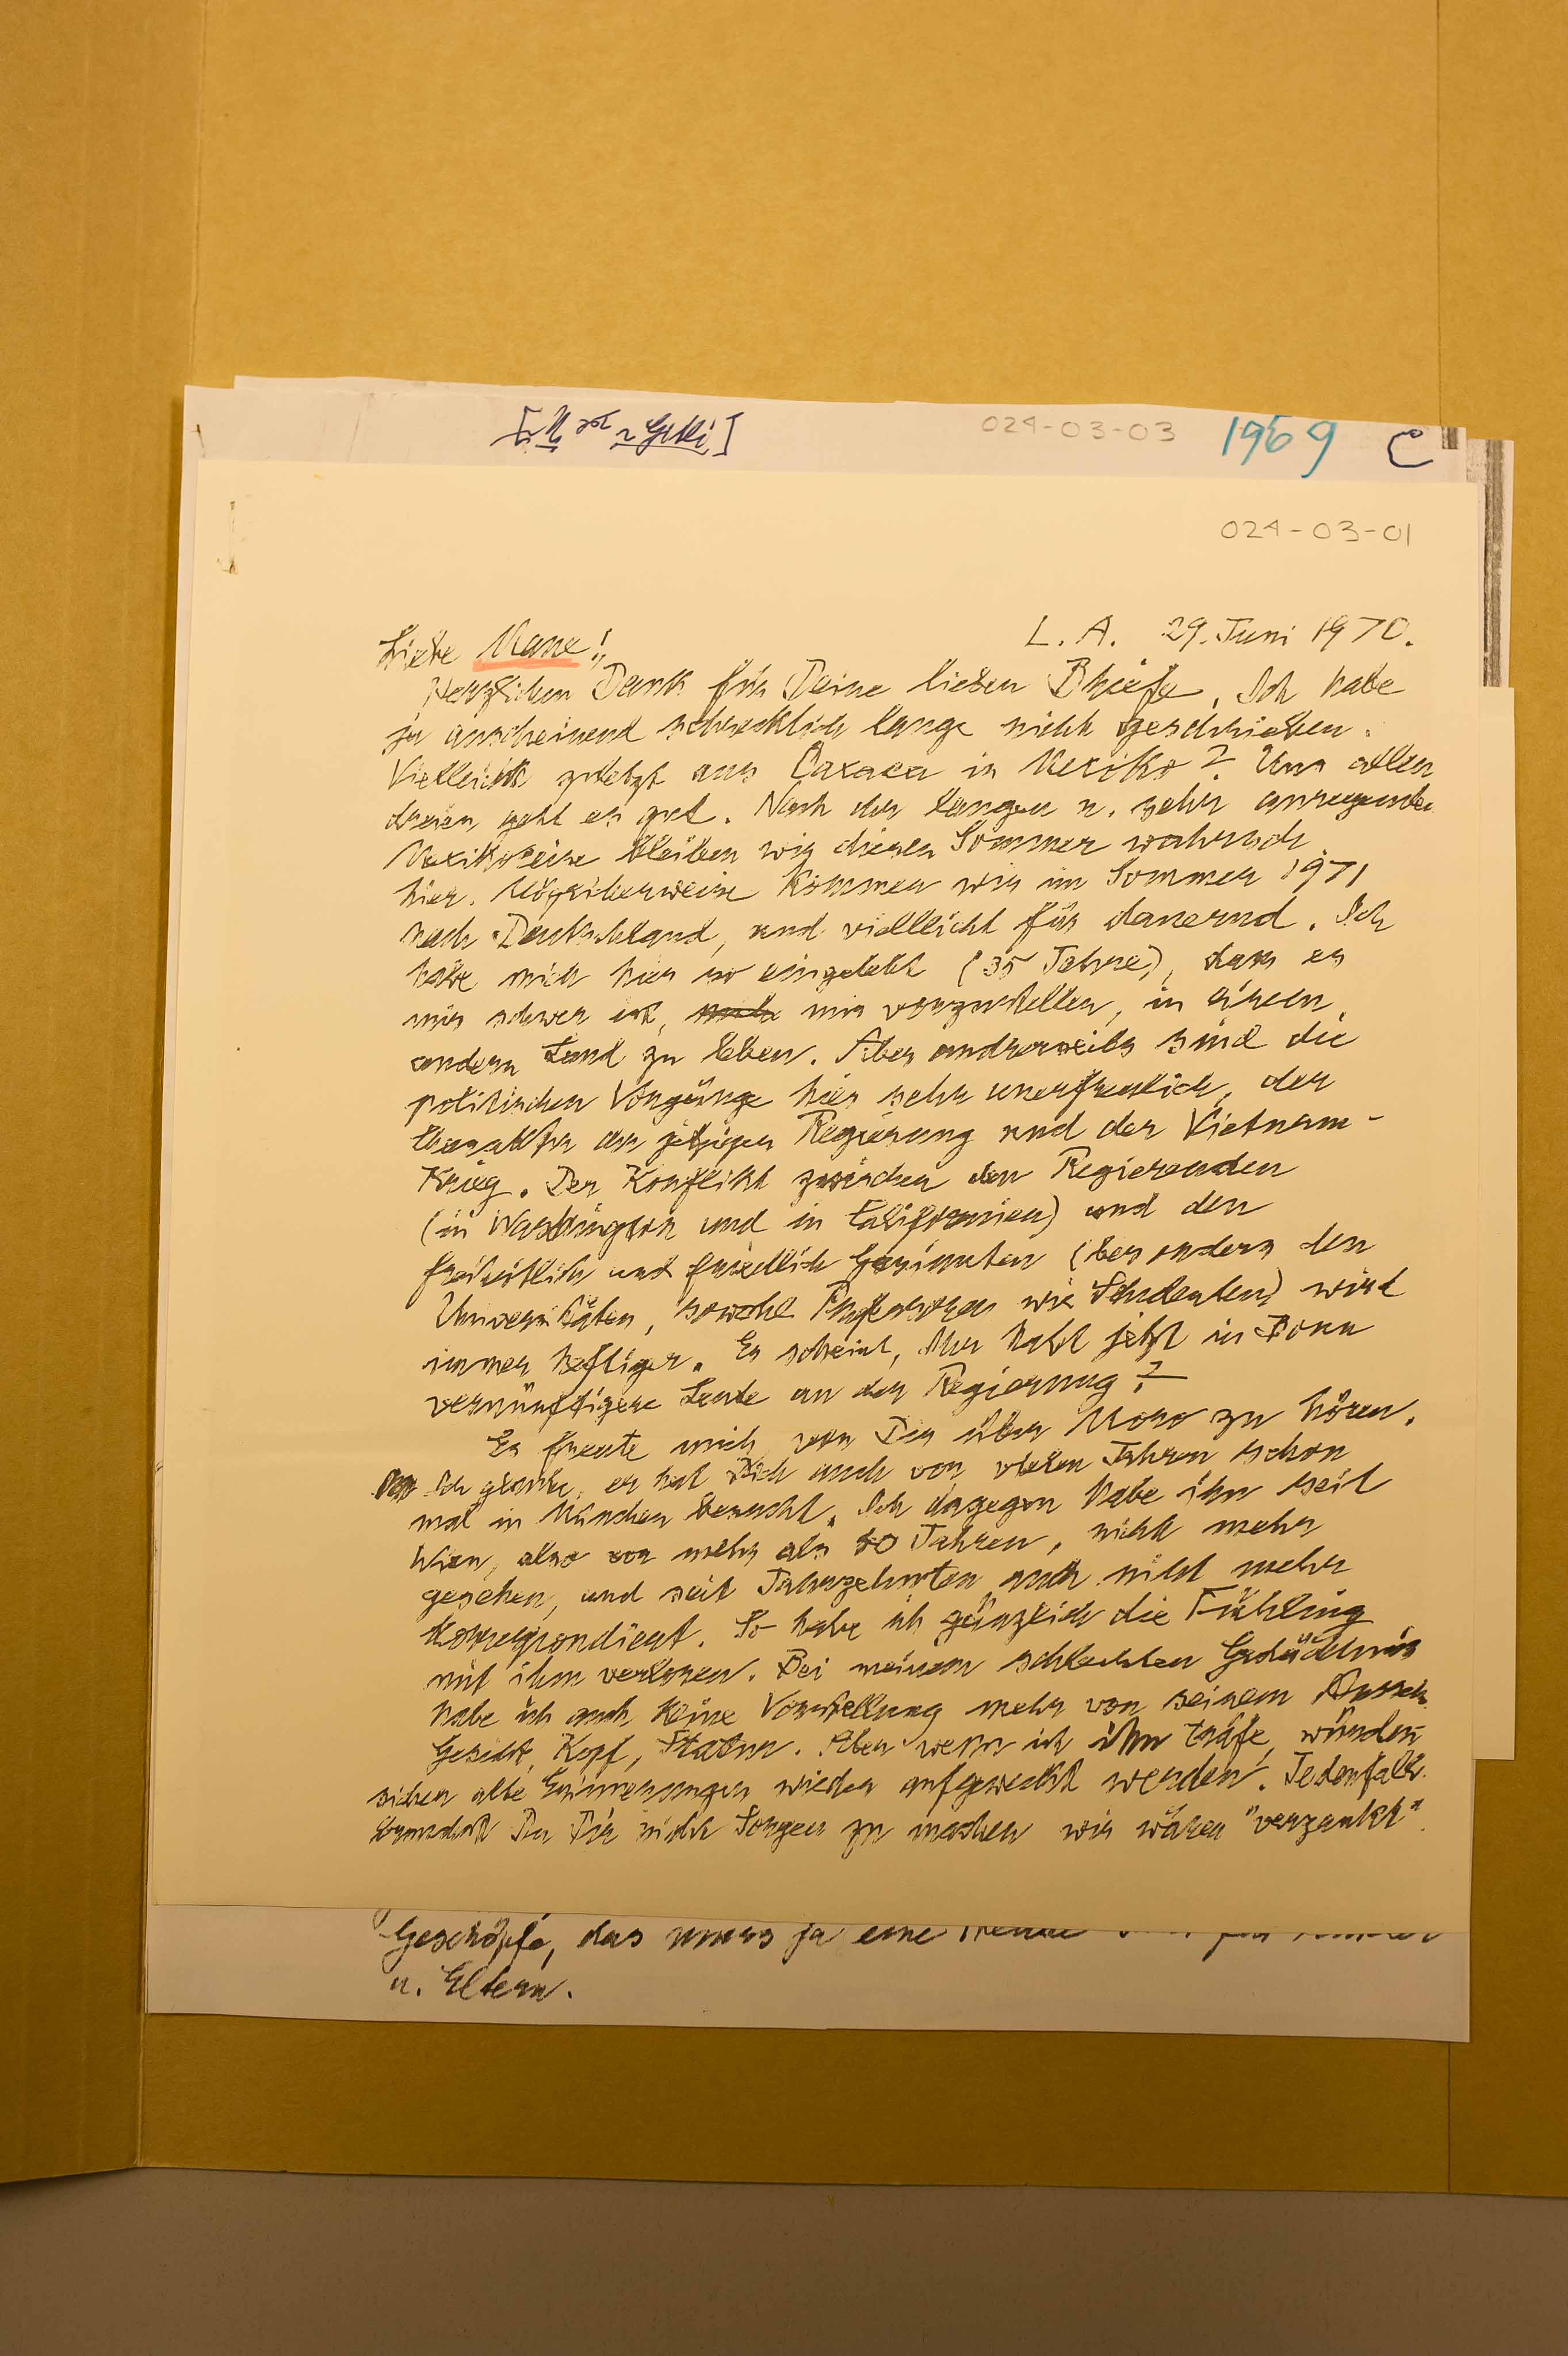 024-03-03 1969 C
024-03-01
L. A. 29. Juni 1970.
Liebe Mane!
Herzlichen Dank für Deine lieben Briefe. Ich habe
ja anscheinend schrecklich lange nicht geschrieben.
Vielleicht zuletzt aus Oaxaca in Mexiko? Uns allen
dreien geht es gut. Nach der langen u. sehr anregenden
Mexikoreise bleiben wir diesen Sommer wahrsch
hier. Möglicherweise kommen wir im Sommer 1971
nach Deutschland, und vielleicht für dauernd. Ich
habe mich hier so eingelebt (35 Jahre), dass es
mir schwer ist, mir vorzustellen, in einem
andern Land zu leben. Aber andrerseits sind die
politischen Vorgänge hier sehr unerfreulich, der
Charakter der jetzigen Regierung und der Vietnam-
Krieg. Der Konflikt zwischen den Regierenden
(in Washington und in Californien) und den
freiheitlich und friedlich Gesinnten (besonders den
Universitäten, sowohl Professoren wie Studenten) wird
immer heftiger. Es scheint, Ihr habt jetzt in Bonn
vernünftigere Leute an der Regierung? —
Es freute mich, von Dir über Moro zu hören.
Ich glaube, er hat Dich auch vor vielen Jahren schon
mal in München besucht. Ich dagegen habe ihn seit
Wien, also vor mehr als 30 Jahren, nicht mehr
gesehen, und seit Jahrzehnten auch nicht mehr
korrespondiert. So habe ich gänzlich die Fühlung
mit ihm verloren. Bei meinem schlechten Gedächtnis
habe ich auch keine Vorstellung mehr von seinem
Gesicht, Kopf, Statur. Aber wenn ich ihn träfe, würden
sicher alte Erinnerungen wieder aufgeweckt werden. Jedenfalls
brauchst Du Dir nicht Sorgen zu machen wir wären "verzankt".
Geschöpfe, das muss ja eine
u. Eltern.